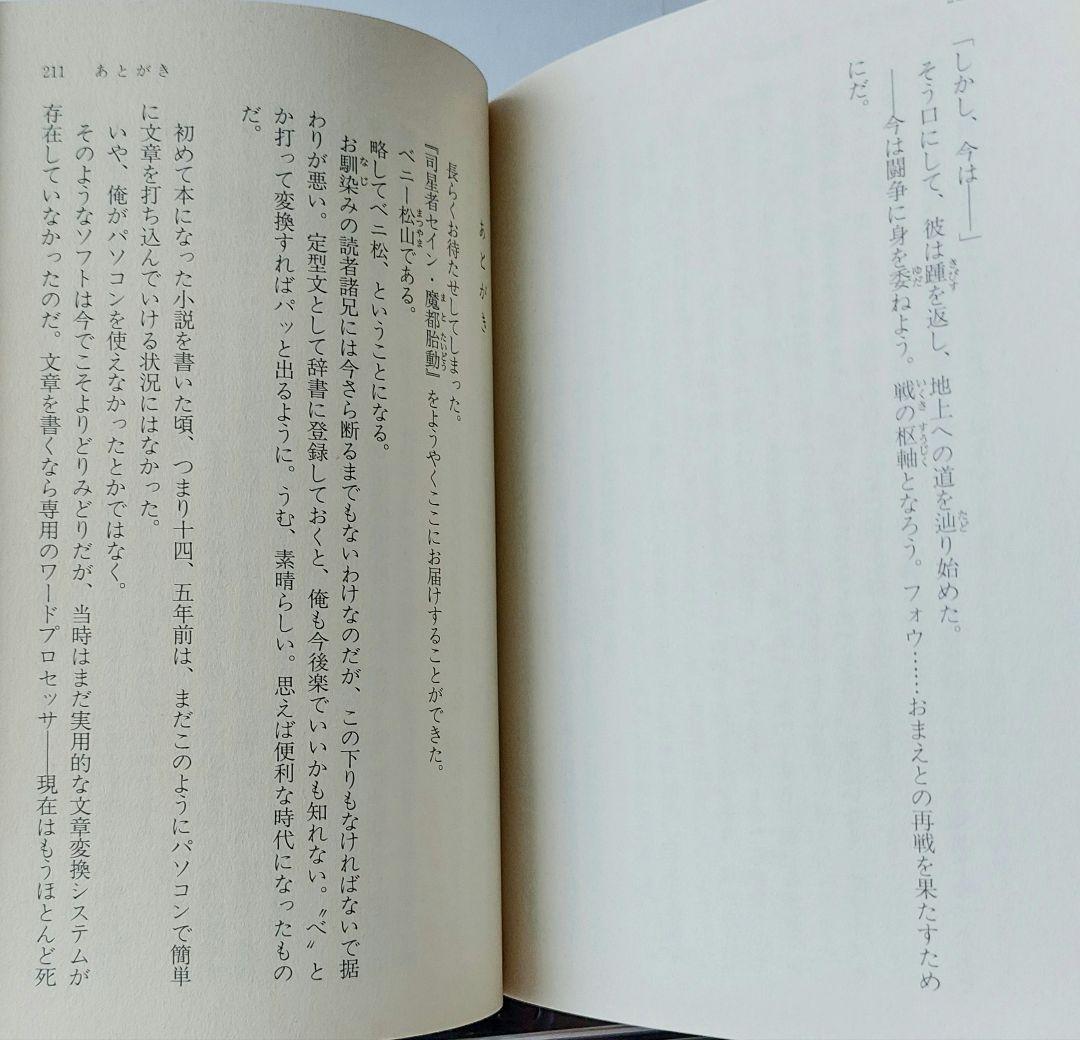 「しかし、今は――」
そう口にして、彼は踵を返し、地上への道を辿り始めた。
――今は闘争に身を委ねよう。戦の枢軸となろう。フォウ……おまえとの再戦を果たすため
にだ。
211 あとがき
あとがき
長らくお待たせしてしまった。
『司星者セイン・魔都胎動』をようやくここにお届けすることができた。
ベニー松山である。
略してベニ松、ということになる。
お馴染みの読者諸兄には今さら断るまでもないわけなのだが、この下りもなければないで据
わりが悪い。定型文として辞書に登録しておくと、俺も今後楽でいいかも知れない。〝べ〟と
か打って変換すればパッと出るように。うむ、素晴らしい。思えば便利な時代になったもの
だ。
初めて本になった小説を書いた頃、つまり十四、五年前は、まだこのようにパソコンで簡単
に文章を打ち込んでいける状況にはなかった。
いや、俺がパソコンを使えなかったとかではなく。
そのようなソフトは今でこそよりどりみどりだが、当時はまだ実用的な文章変換システムが
存在していなかったのだ。文章を書くなら専用のワードプロセッサ――現在はもうほとんど死